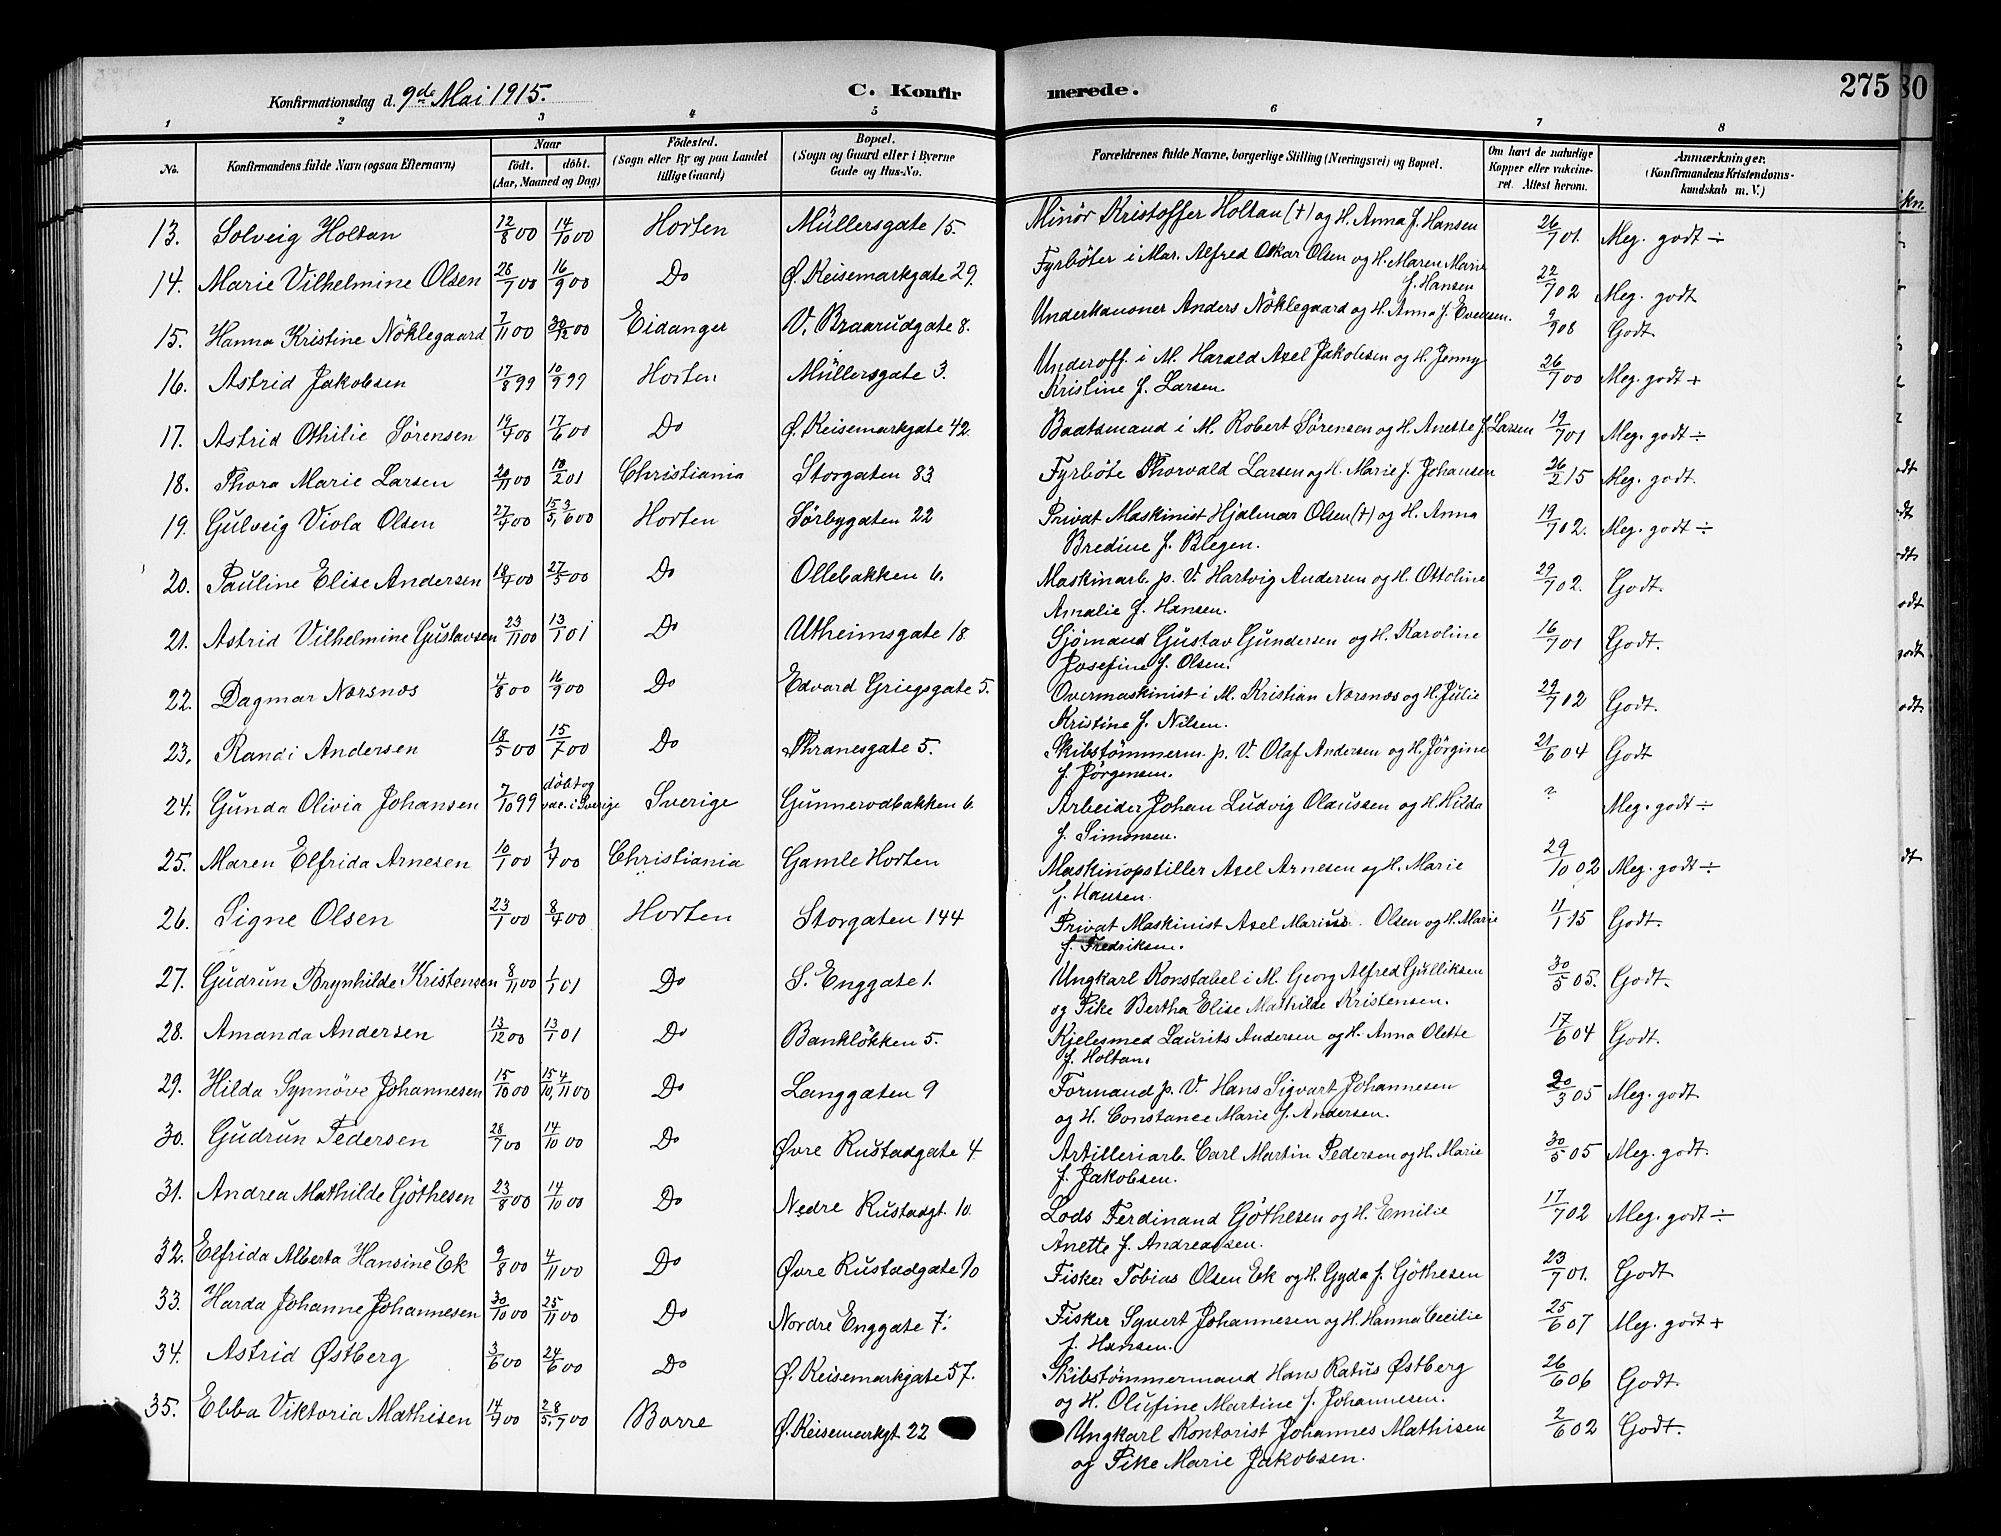 Konfirmationsdag d. 9de Mai 1915. C. Konfir merede. 275 80
1 2 3 4 5 6 7 8
No. Konfirmandens fulde Navn (ogsaa Efternavn) Naar födt. döbt. (Aar, Maaned og Dag) Födested. (Sogn eller By og paa Landet tillige Gaard) Bopæl. (Sogn og Gaard eller i Byerne Gade og Hus-No. Forældrenes fulde Navne, borgerlige Stilling (Næringsvei) og Bopæl. Om havt de naturlige Kopper eller vakcineret. Attest herom. Anmærkninger. (Konfirmandens Kristendomskundskab m. V.)
13. Solveig Holtan 12/8 00 14/10 00 Horten Müllersgate 15. Minör Kristoffer Holtan (+) og H. Anna f. Hansen 26/7 01. Meg. godt ÷
14. Marie Vilhelmine Olsen 28/7 00 16/9 00 Do Ø. Keisemarkgate 29. Fyrböter i Mar. Alfred Oskar Olsen og H. Maren Marie
f. Hansen 22/7 02 Meg. godt
15. Hanna Kristine Nöklegaard 7/11 00 30/12 00 Eidanger V. Braarudgate 8. Underkanoner Anders Nöklegaard og H. Anna f. Evensen. 9/9 08 Godt
16. Astrid Jakobsen 17/8 99 10/9 99 Horten Müllersgate 3. Underoff. i M. Harald Axel Jakobsen og H. Jenny
Kristine f. Larsen. 26/7 00 Meg. godt +
17. Astrid Othilie Sörensen 19/4 00 17/6 00 Do Ø. Keisemarkgate 42. Baatsmand i M. Robert Sörensen og H. Anette f. Larsen 19/7 01 Meg. godt ÷
18. Thora Marie Larsen 20/11 00 10/2 01 Christiania Storgaten 83 Fyrböte Thorvald Larsen og H. Marie f. Johansen 26/2 15 Meg. godt.
19. Gulveig Viola Olsen 27/4 00 15/5, 3/6 00 Horten Sörbygaten 22 Privat Maskinist Hjalmar Olsen (+) og H. Anna
Bredine f. Blegen. 19/7 02. Meg. godt ÷
20. Pauline Elise Andersen 18/4 00 27/5 00 Do Ollebakken 6. Maskinarb. p. V. Hartvig Andersen og H. Ottoline
Amalie f. Hansen. 29/7 02. Godt.
21. Astrid Vilhelmine Gustavsen 23/11 00 13/1 01 Do Utheimsgate 18 Sjömand Gustav Gundersen og H. Karoline
Josefine f. Olsen. 16/7 01 Godt.
22. Dagmar Næsnæs 4/8 00 16/9 00 Do Edvard Griegsgate 5. Overmaskinist i M. Kristian Næsnæs og H. Julie
Kristine f. Nilsen. 29/7 02 Godt.
23. Randi Andersen 18/5 00 15/7 00 Do Thranesgate 5. Skibstömmerm. p. V. Olaf Andersen og H. Jörgine
f. Jörgensen. 21/6 04 Godt
24. Gunda Olivia Johansen 7/10 99 döbt og vac. i Sverige Sverige Gunnerodbakken 6. Arbeider Johan Ludvig Olaussen og H. Hilda
f. Simonsen. ? Meg. godt ÷
25. Maren Elfrida Arnesen 10/1 00 1/4 00 Christiania Gamle Horten Maskinopstiller Axel Arnesen og H. Marie
f. Hansen. 29/10 02 Meg. godt ÷
26. Signe Olsen 23/1 00 8/4 00 Horten Storgaten 144 Privat Maskinist Axel Marius Olsen og H. Marie
f. Fredriksen. 11/1 15 Godt.
27. Gudrun Brynhilde Kristensen 8/11 00 1/1 01 Do S. Enggate 1. Ungkarl Konstabel i M. Georg Alfred Gulliksen
og Pike Bertha Elise Mathilde Kristensen. 30/5 05. Godt.
28. Amanda Andersen 13/12 00 13/1 01 Do Banklökken 5. Kjelesmed Laurits Andersen og H. Anna Olette
f. Holtan. 17/6 04 Godt.
29. Hilda Synnöve Johannesen 15/10 00 15/10, 4/11 00 Do Langgaten 9 Formand p. V. Hans Sigvart Johannesen
og H. Constance Marie f. Andersen. 20/3 05 Meg. godt
30. Gudrun Pedersen 28/7 00 14/10 00 Do Øvre Rustadgate 4. Artilleriarb. Carl Martin Pedersen og H. Marie
f. Jakobsen. 30/5 05 Meg. godt.
31. Andrea Mathilde Göthesen 23/8 00 14/10 00 Do Nedre Rustadgt. 10. Lods Ferdinand Göthesen og H. Emilie
Anette f. Andreassen. 17/7 02 Meg. godt ÷
32. Elfrida Alberta Hansine Ek 9/8 00 4/11 00 Do Øvre Rustadgate 10 Fisker Tobias Olsen Ek og H. Gyda f. Göthesen 23/7 01. Godt
33. Harda Johanne Johannesen 30/10 00 25/11 00 Do Nordre Enggate 7. Fisker Syvert Johannesen og H. Hanna Cecilie
f. Hansen. 25/6 07 Meg. godt +
34. Astrid Østberg 3/6 00 24/6 00 Do Ø. Keisemarkgate 57. Skibstömmermand Hans Ratus Østberg
og H. Olufine Martine f. Johannesen. 26/6 06 Godt.
35. Ebba Viktoria Mathisen 14/4 00 28/5, 7 00 Borre Ø. Keisemarkgt. 22 Ungkarl Kontorist Johannes Mathisen
og Pike Marie Jakobsen. 2/6 02 Godt.